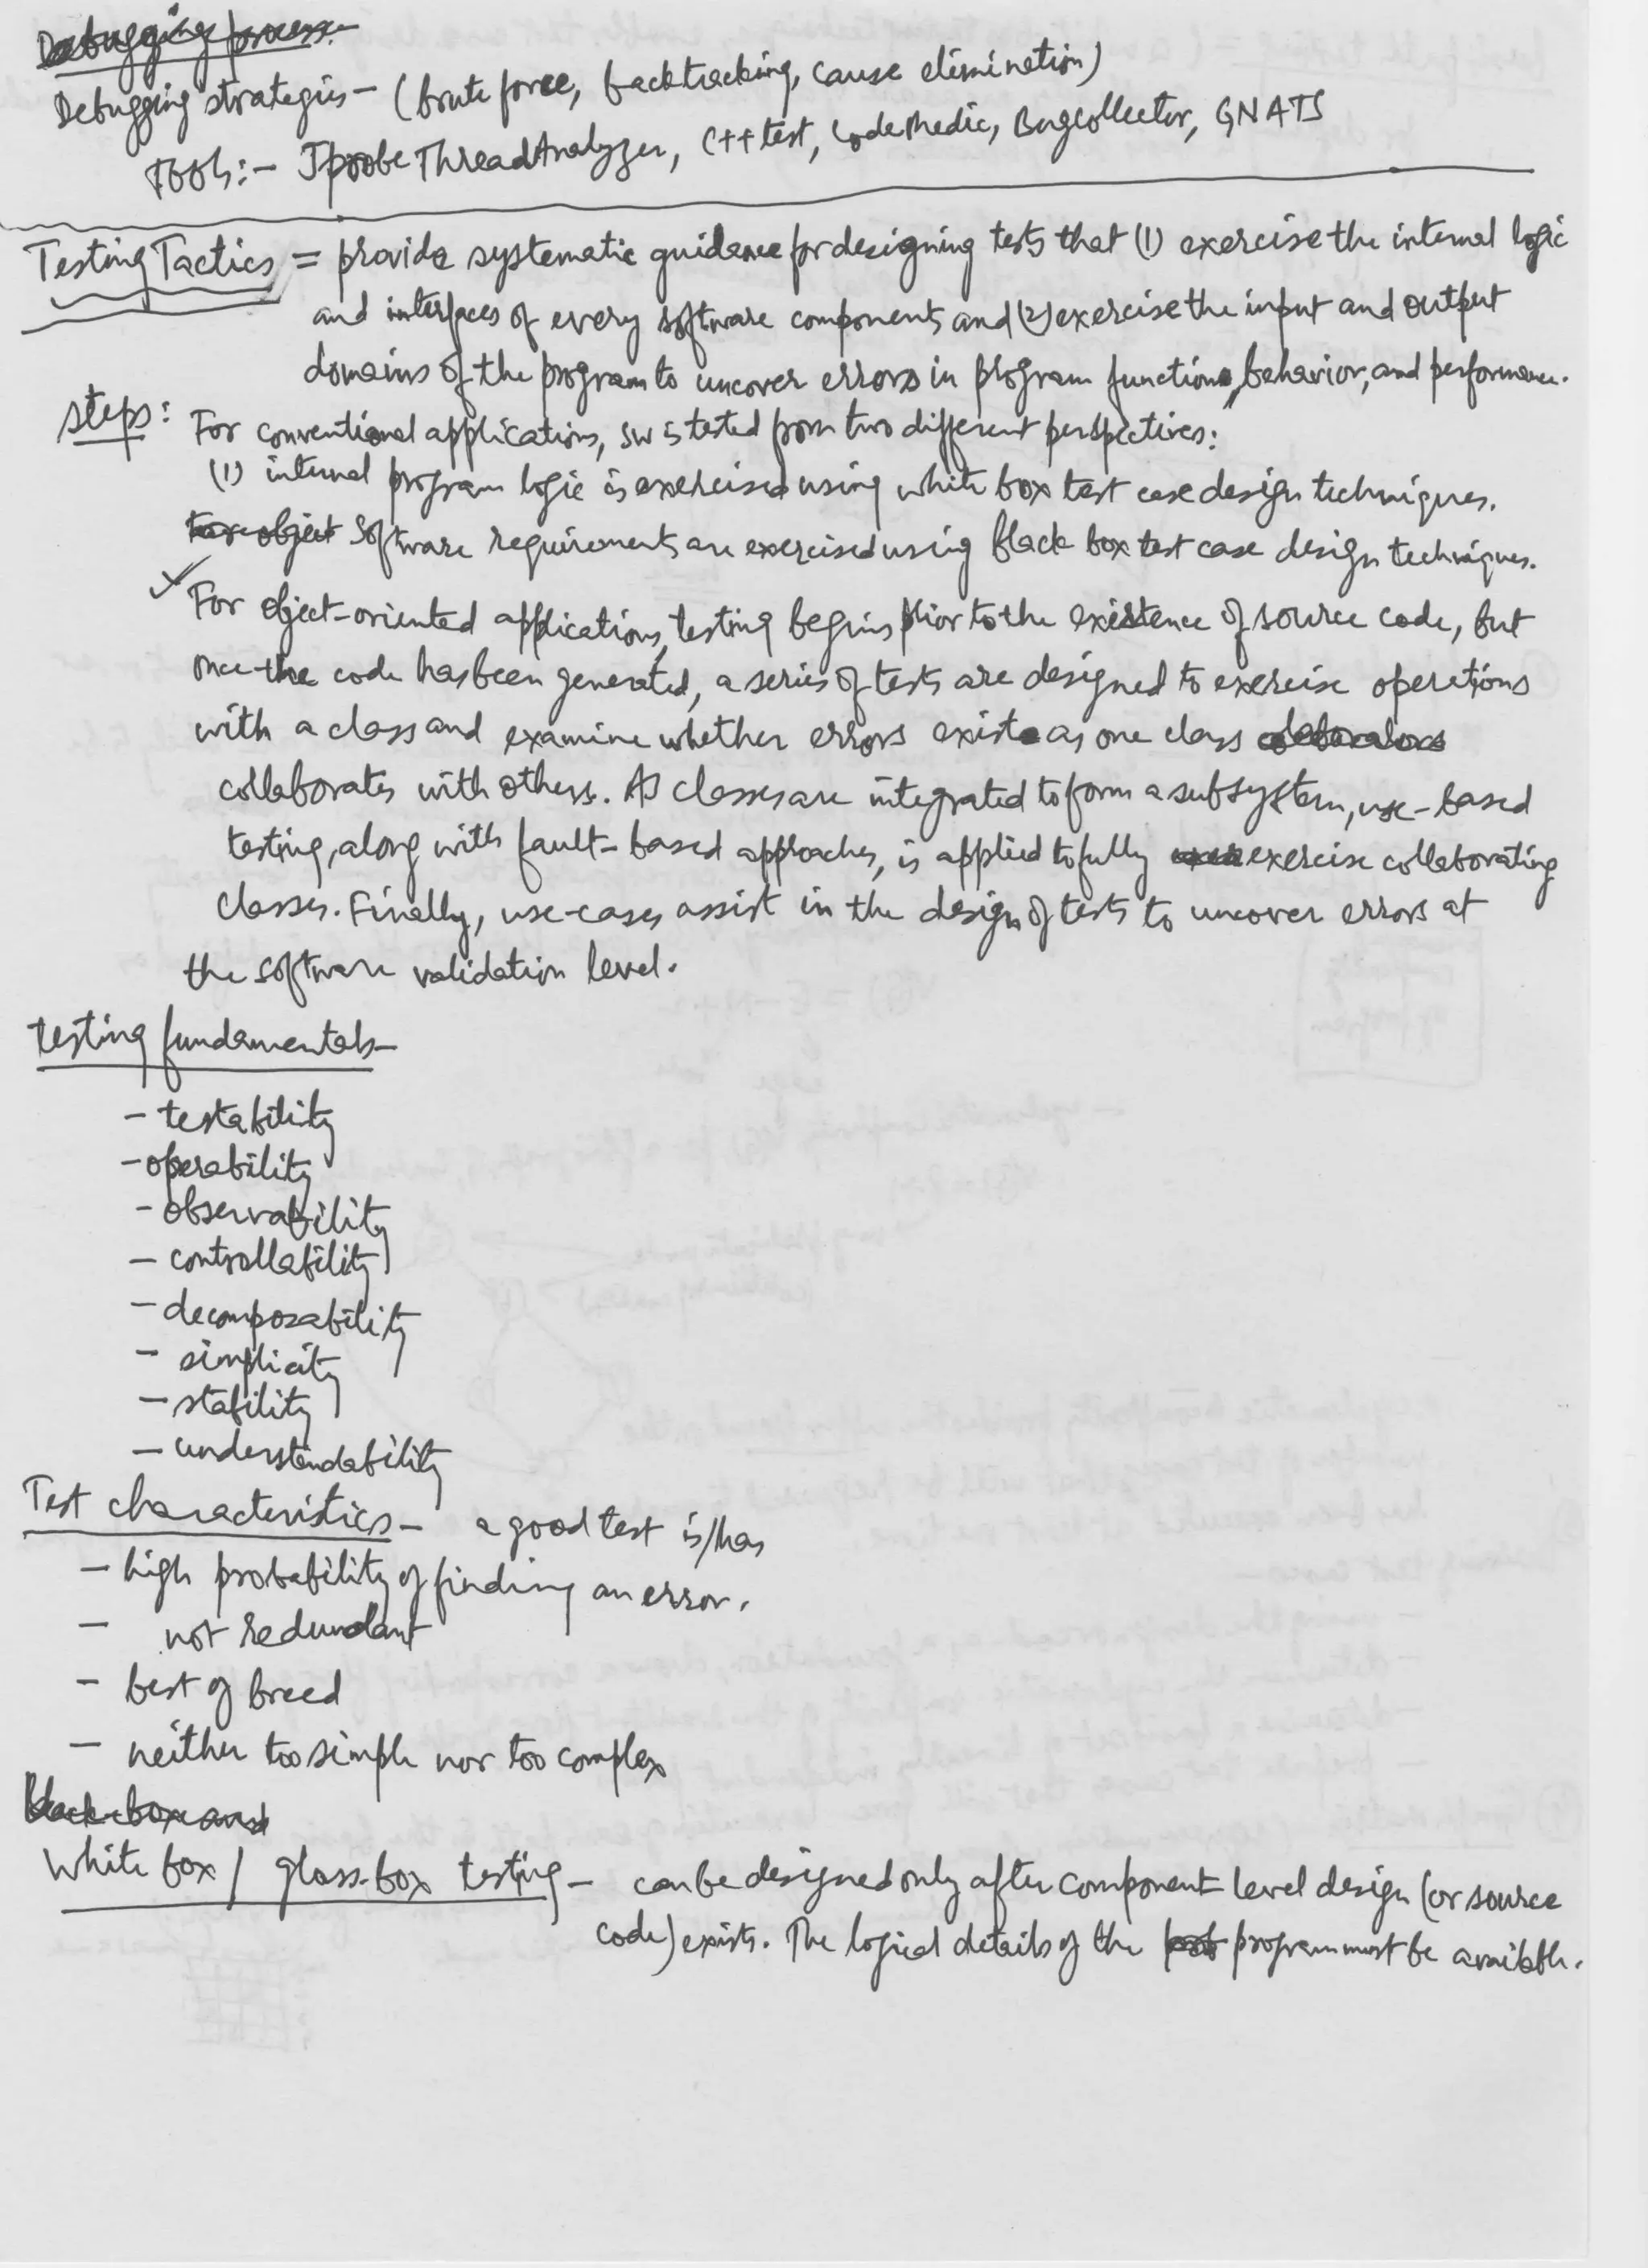 Debugging process
Debugging strategies - (brute force, backtracking, cause elimination)
Tools:- Jprobe ThreadAnalyzer, C++ test, CodeMedic, BugCollector, GNATS
Testing Tactics = provide systematic guidance for designing tests that (1) exercise the internal logic
and interfaces of every software component, and (2) exercise the input and output
domains of the program to uncover errors in program function, behavior, and performance.
steps: For conventional applications, SW is tested from two different perspectives:
(1) internal program logic is exercised using white box test case design techniques.
Software requirements are exercised using black box test case design techniques.
For object-oriented applications, testing begins prior to the existence of source code, but
once the code has been generated, a series of tests are designed to exercise operations
with a class and examine whether errors exist as one class
collaborates with others. As classes are integrated to form a subsystem, use-based
testing, along with fault-based approaches, is applied to fully exercise collaborating
classes. Finally, use-cases assist in the design of tests to uncover errors at
the software validation level.
testing fundamentals-
- testability
- operability
- observability
- controllability
- decomposability
- simplicity
- stability
- understandability
Test characteristics - a good test is/has
- high probability of finding an error.
- not redundant
- best of breed
- neither too simple nor too complex
Black-box and
White box / glass-box testing - can be designed only after component level design (or source
code) exists. The logical details of the program must be availble.